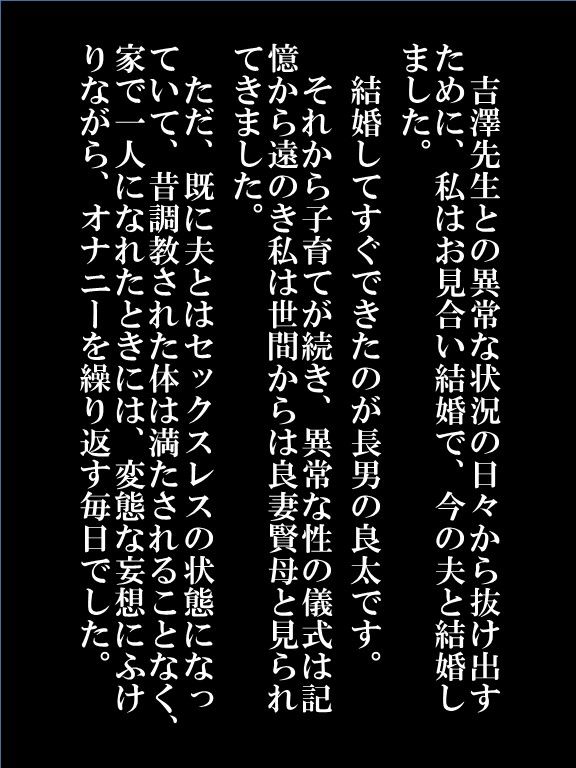 吉澤先生との異常な状況の日々から抜け出す
ために、私はお見合い結婚で、今の夫と結婚し
ました。
結婚してすぐできたのが長男の良太です。
それから子育てが続き、異常な性の儀式は記
憶から遠のき私は世間からは良妻賢母と見られ
てきました。
ただ、既に夫とはセックスレスの状態になっ
ていて、昔調教された体は満たされることなく、
家で一人になれたときには、変態な妄想にふけ
りながら、オナニーを繰り返す毎日でした。